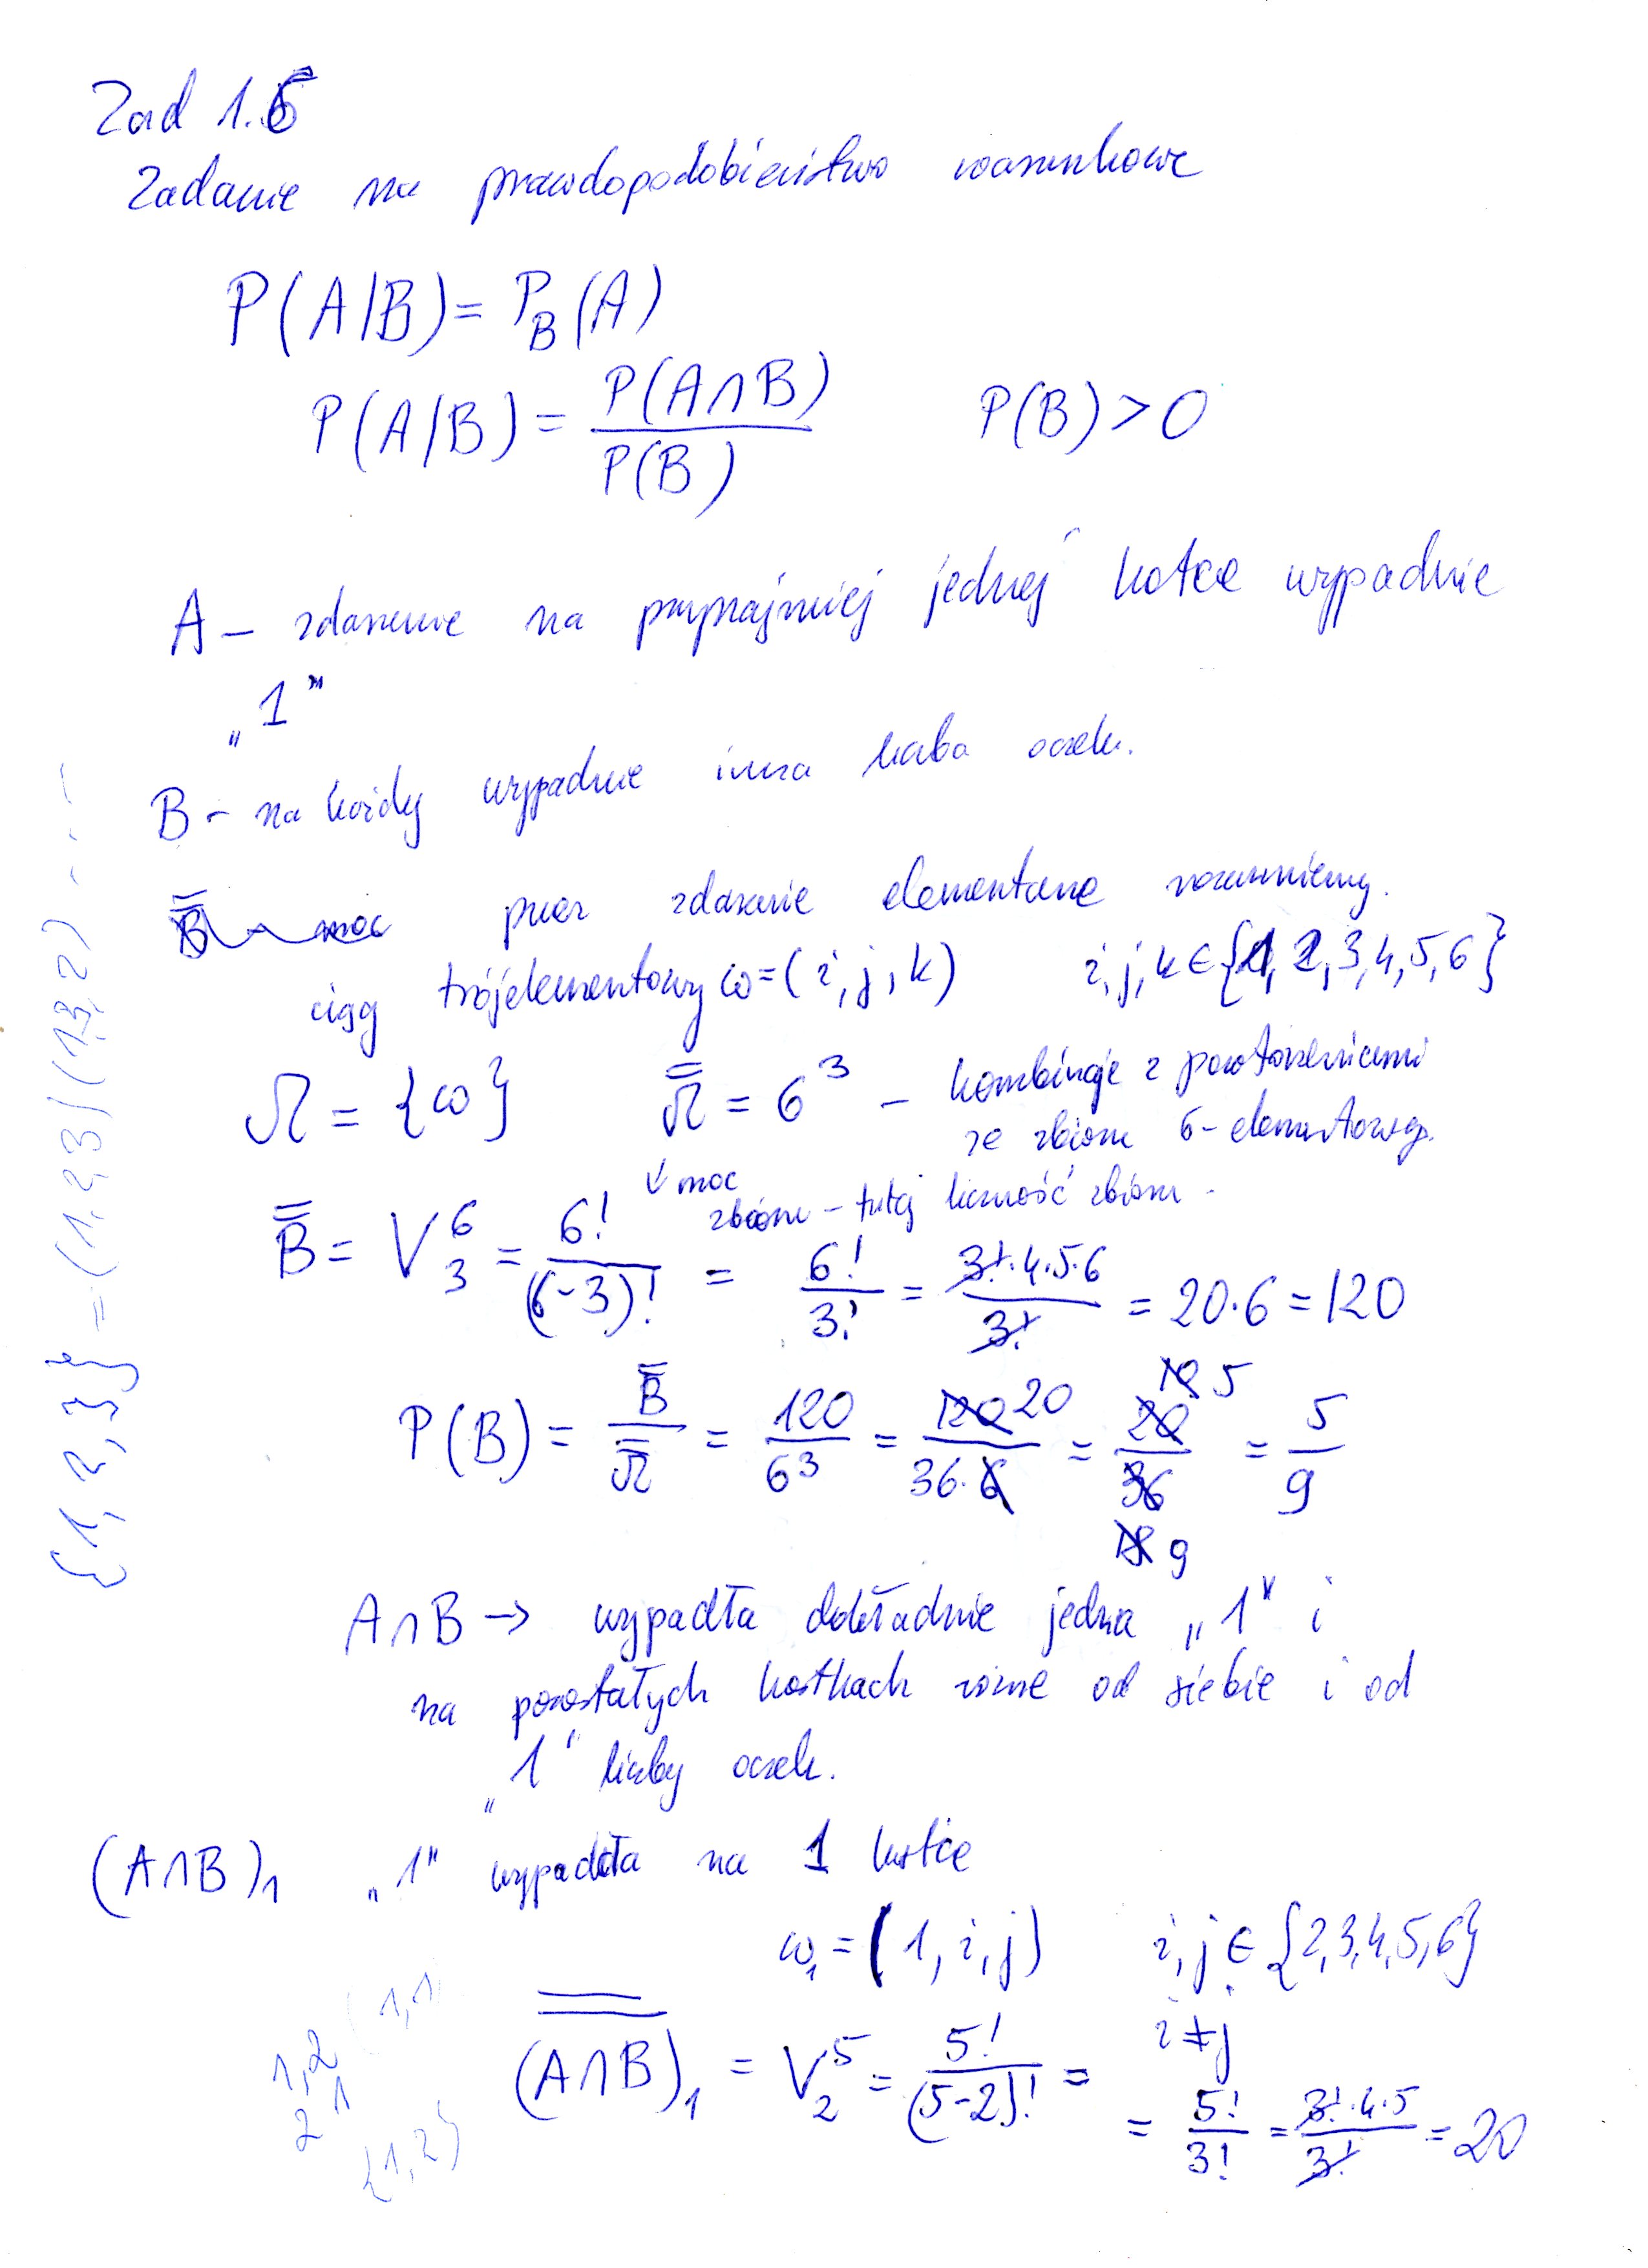 Zad 1.6
Zadanie na prawdopodobieństwo warunkowe
P(A/B) = P_B(A)
P(A/B) = P(A∩B) / P(B)    P(B) > 0
A – zdarzenie na przynajmniej jednej kostce wypadnie
„1”
B – na każdej wypadnie inna liczba oczek.
B̿ moc przez zdarzenie elementarne rozumiemy.
ciąg trójelementowy ω = (i, j, k)    i, j, k ∈ {1, 2, 3, 4, 5, 6}
Ω = {ω}    Ω̿ = 6³ – kombinacje z powtórzeniami
ze zbioru 6-elementowego.
moc
zbioru – tutaj liczność zbioru.
B̿ = V₃⁶ = 6! / (6-3)! = 6! / 3! = 3!·4·5·6 / 3! = 20·6 = 120
P(B) = B̿ / Ω̿ = 120 / 6³ = 120 20 / 36·6 = 20 10 5 / 36 18 9 = 5 / 9
A∩B → wypadła dokładnie jedna „1” i
na pozostałych kostkach różne od siebie i od
„1” liczby oczek.
(A∩B)₁ „1” wypadła na 1 kostce
ω₁ = (1, i, j)    i, j ∈ {2, 3, 4, 5, 6}
i ≠ j
(A∩B)₁ = V₂⁵ = 5! / (5-2)! =
= 5! / 3! = 3!·4·5 / 3! = 20
{1, 2, 3} = (1, 2, 3) (1, 3, 2) ...
(1, 1)
1, 2
2 1
{1, 2}